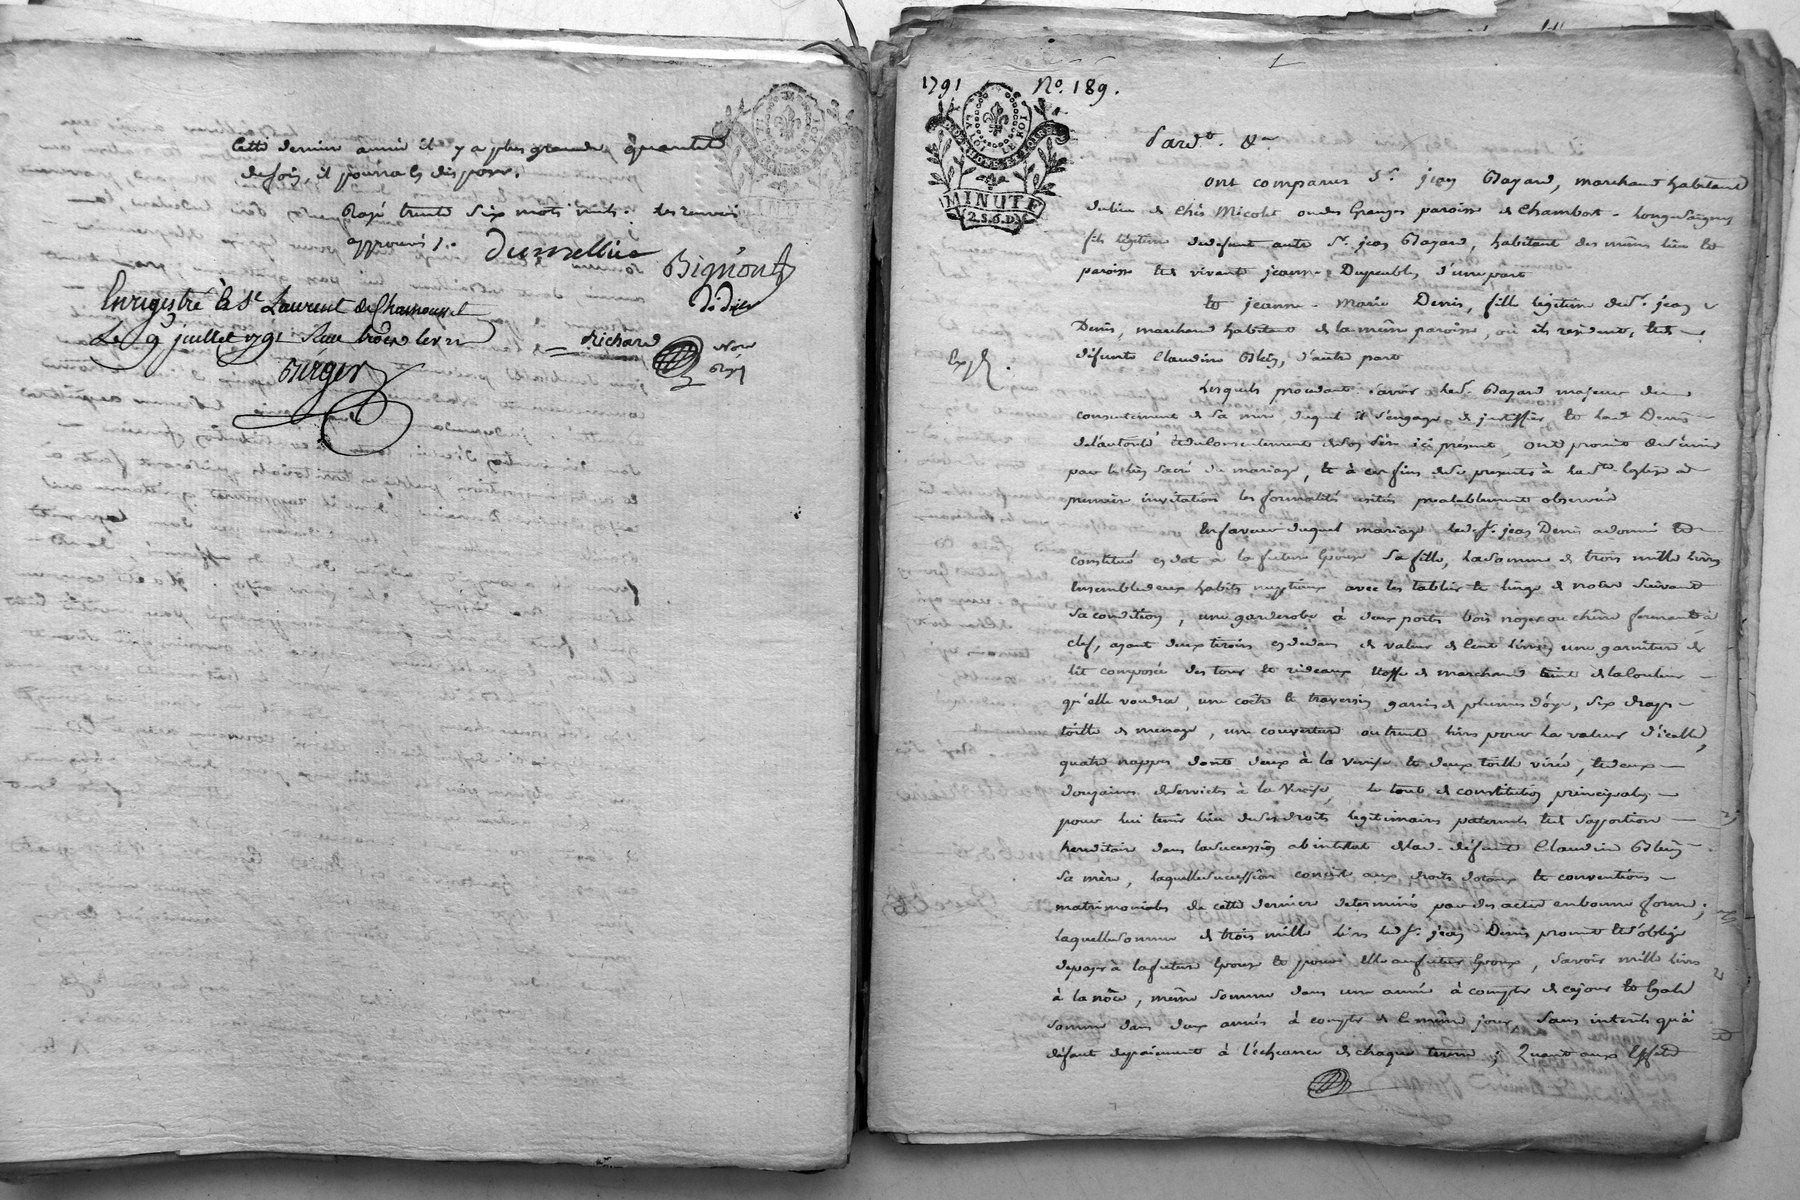 Cette derniere année il y a plus grande quantité
de foin, il pourra les disposer.
Rayé trente six mots nuls. les renvois
approuvés /.
Dumellier
Bignont
Didier
Enregistré à St Laurent de Chamousset
Le 9 juillet 1791 Reçu
Richard
Nore
Roy
Burger
1791 No. 189.
LA LOI LE ROI
MINUTE
2.S.6.D
Pardt. &a
Ont comparus Sr. jean Bayard, marchand habitant
du lieu de Chés Micolet ou des Granges paroisse de Chambost-longuesaigne
fils légitime de défunt autre Sr. jean Bayard, habitant des mêmes lieu et
paroisse et de vivante jeanne Dupeuble, d'une part
Et jeanne-Marie Denis, fille légitime de Sr. jean
Denis, marchand habitant de la même paroisse, où ils resident, et de
défunte Claudine Blein, d'autre part
Exp.
Lesquels procedant savoir led. Bayard majeur du
consentement de sa mere duquel il s'engage de justiffier et lad. Denis
de l'autorité et du consentement de son Père ici présent, ont promit de s'unir
par le lien sacré du mariage, et à ces fins de se presenter à la Ste. Eglise a
premiere invitation les formalités usitées prealablement observées
En faveur duquel mariage led. Sr. jean Denis a donné et
constitué en dot à la future Epouse sa fille, la somme de trois mille livres
Ensemble deux habits nuptiaux avec les tablier et linge de noces suivant
sa condition, une garderobe à deux portes bois noyer ou chêne fermante à
clef, ayant deux tiroirs en dedans de valeur de Cent livres, une garniture de
lit composée des tour et rideaux étoffe de marchand teint de la couleur
qu'elle voudra, une coëtre et traversin garnis de plumes d'oye, six draps
toille de menage, une couverture ou trente livres pour la valeur d'icelle,
quatre nappes dont deux à la Venise et deux toille virée, et deux
douzaines de serviettes à la Venise, le tout de constitution principale
pour lui tenir lieu de ses droits légitimaires paternels et de sa portion
hereditaire dans la succession ab intestat de lad. défunte Claudine Blein
sa mère, laquelle succession consiste aux droits dotaux et conventions
matrimoniales de cette derniere determinés par des actes en bonne forme;
laquelle somme de trois mille livres led. Sr. jean Denis promet et s'oblige
de payer à la future Epouse et pour Elle au futur Epoux, savoir mille livres
à la nôce, même somme dans une année à compter de ce jour et Egale
somme dans deux années à compter de le même jour, sans interêts qu'à
défaut de paiement à l'échéance de chaque terme; Quant aux Effets